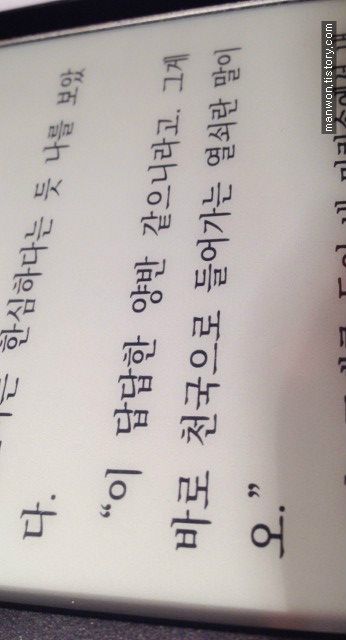 는 한심하다는 듯 나를 보았
다.
“이 답답한 양반 같으니라고. 그게
바로 천국으로 들어가는 열쇠란 말이
오.”
manwon.tistory.com